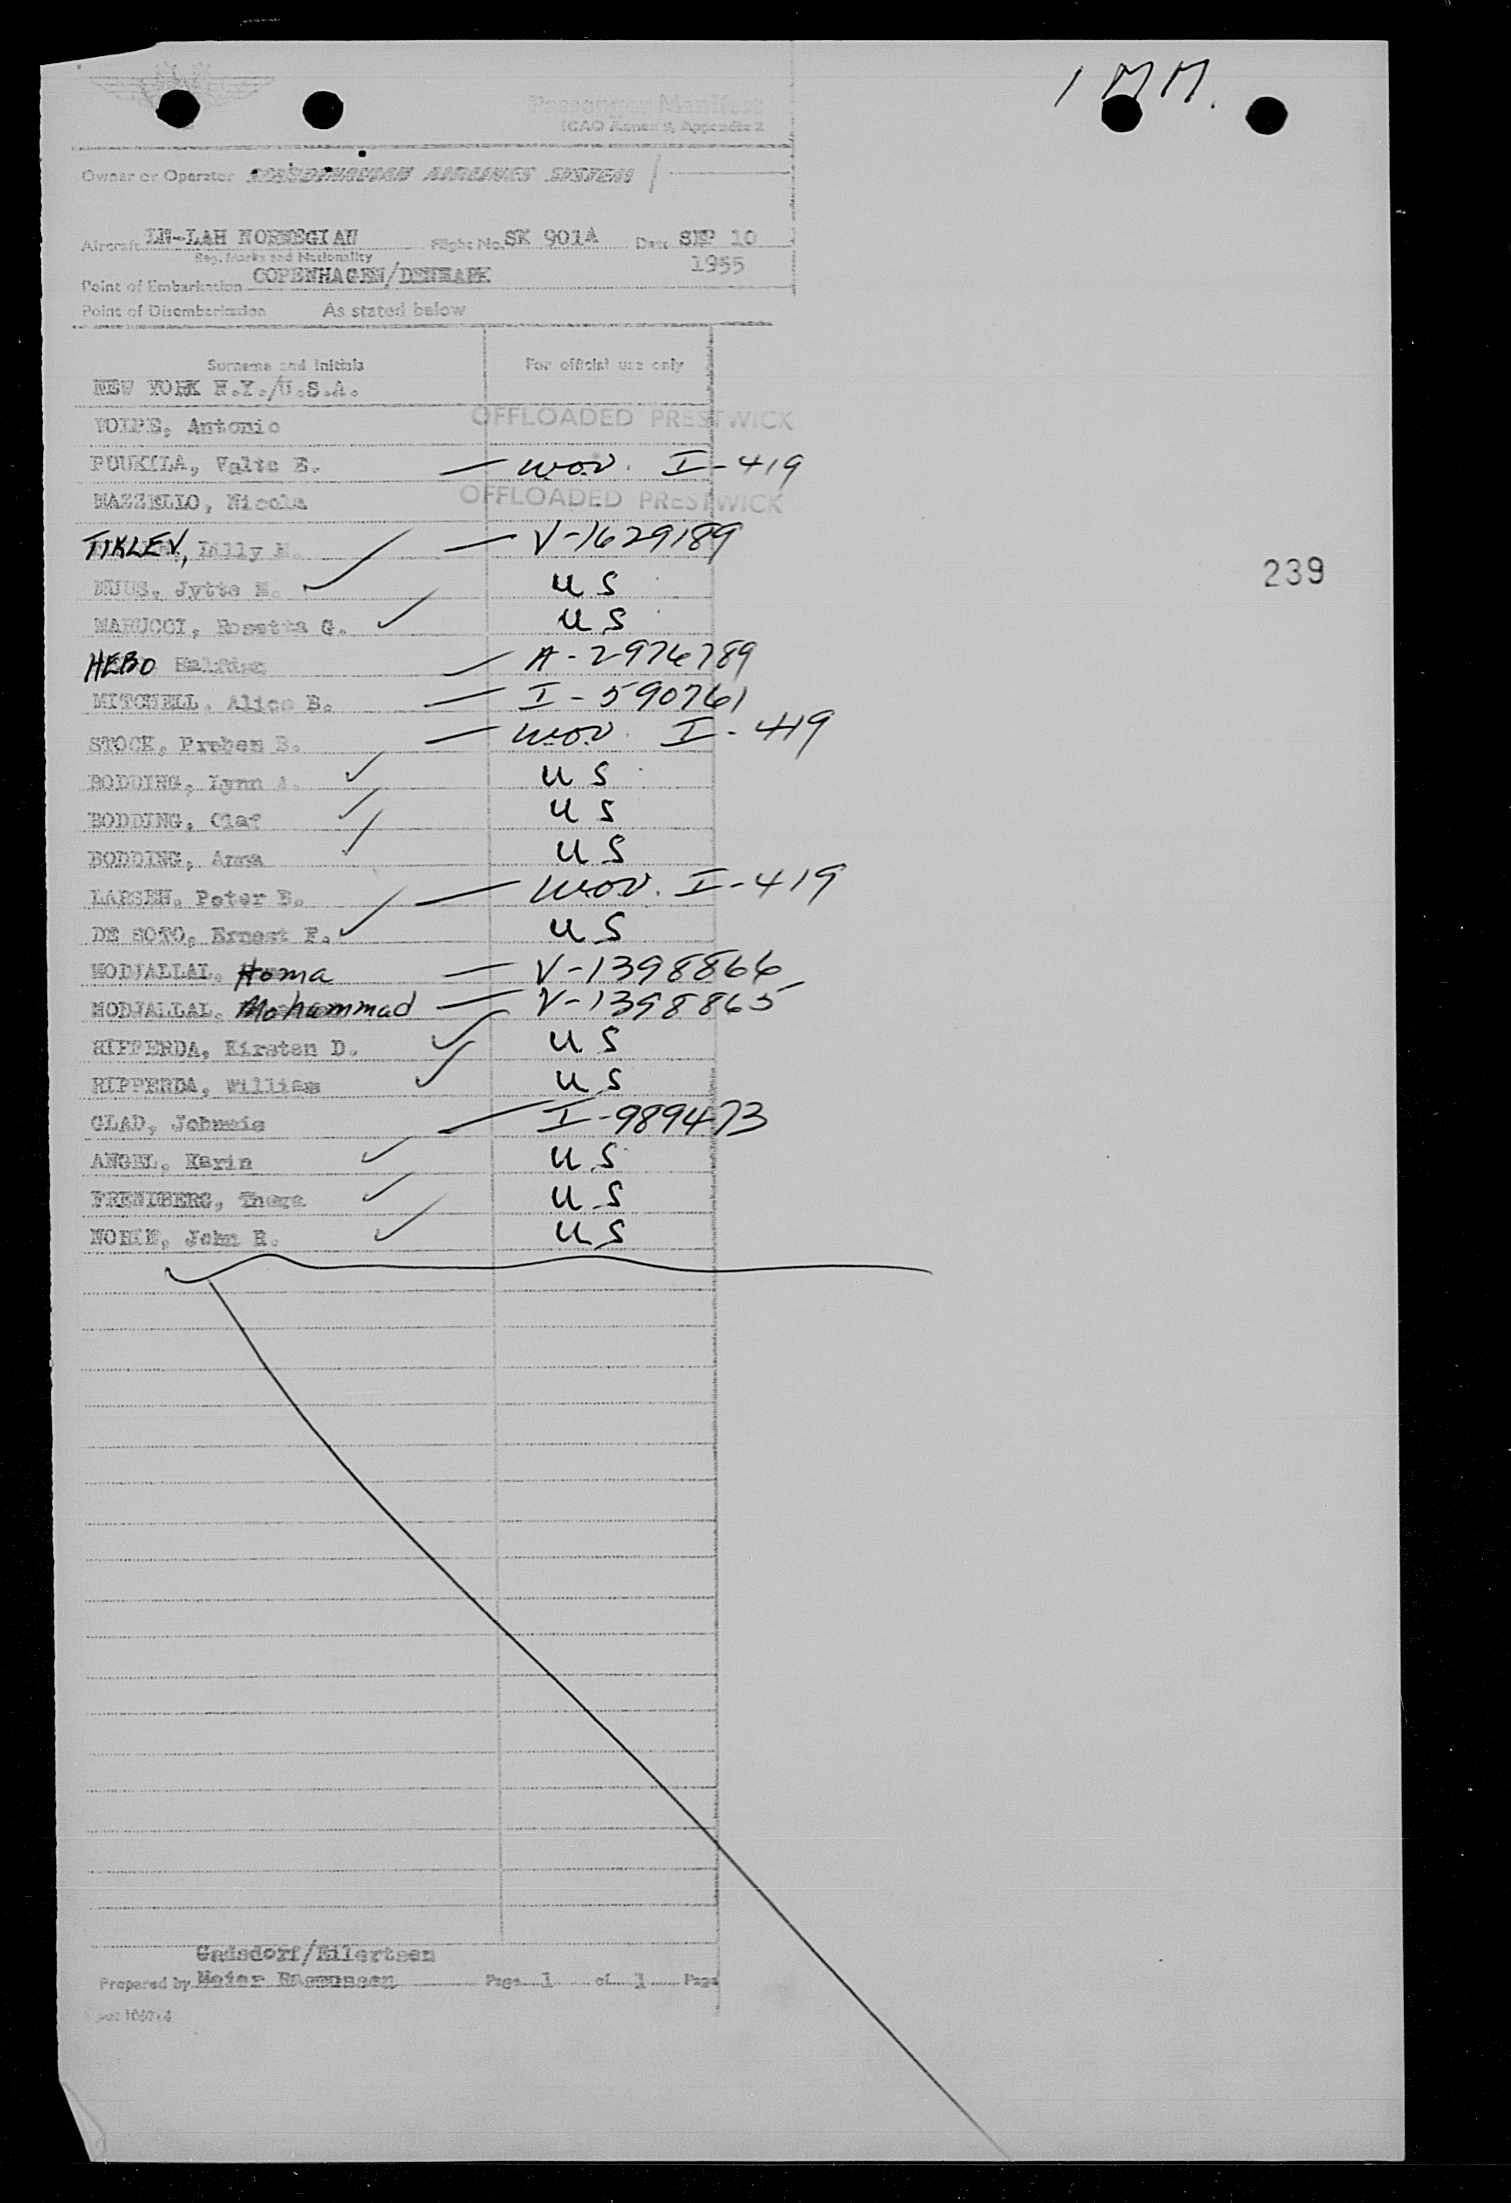 1 MM.
Passenger Manifest
ICAO Annex 9, Appendix 2
Owner or Operator SCANDINAVIAN AIRLINES SYSTEM
Aircraft LN-LAH NORWEGIAN Flight No. SK 901A Date SEP 10
Reg. Marks and Nationality 1955
Point of Embarkation COPENHAGEN/DENMARK
Point of Disembarkation As stated below
Surname and Initials For official use only
NEW YORK N.Y./U.S.A.
VOLPE, Antonio OFFLOADED PRESTWICK
POUKILA, Valte E. — wov. I-419
MAZZELLO, Nicola OFFLOADED PRESTWICK
TIKLEV, Lilly — V-1629189
239
Jytte US
MARUCCI, Rosetta G. US
HEBO Halfdan — A-2976789
MITCHELL, Alice B. — I-590761
STOCK, Preben B. — wov. I-419
BODDING, Lynn A. US
BODDING, Olaf US
BODDING, Anna US
LARSEN, Peter B. — wov. I-419
DE SOTO, Ernest F. US
MODJALLAL, Homa — V-1398866
MODJALLAL, Mohammad — V-1398865
RIPPERDA, Kirsten D. US
RIPPERDA, William US
GLAD, Johnnie — I-989473
ANGEL, Karin US
FREMIBERG, Thora US
NORIN, John R. US
Gadsdorf/Eilertsen
Prepared by Meier Rasmussen Page 1 of 1 Page